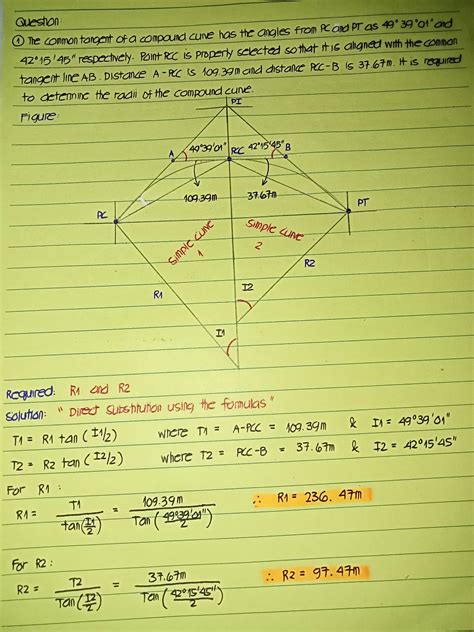 Question
① The common tangent of a compound curve has the angles from PC and PT as 49°39'01" and
42°15'45" respectively. Point PCC is properly selected so that it is aligned with the common
tangent line AB. Distance A-PCC is 109.39m and distance PCC-B is 37.67m. It is required
to determine the radii of the compound curve.
Figure:
PI
A 49°39'01" PCC 42°15'45" B
109.39m 37.67m
PC PT
simple curve 1
simple curve 2
R1 R2
I2
I1
Required: R1 and R2
Solution: "Direct substitution using the formulas"
T1 = R1 tan (I1/2) where T1 = A-PCC = 109.39m & I1 = 49°39'01"
T2 = R2 tan (I2/2) where T2 = PCC-B = 37.67m & I2 = 42°15'45"
For R1:
R1 = T1 / tan(I1/2) = 109.39m / Tan(49°39'01"/2) ∴ R1 = 236.47m
For R2:
R2 = T2 / Tan(I2/2) = 37.67m / Tan(42°15'45"/2) ∴ R2 = 97.47m